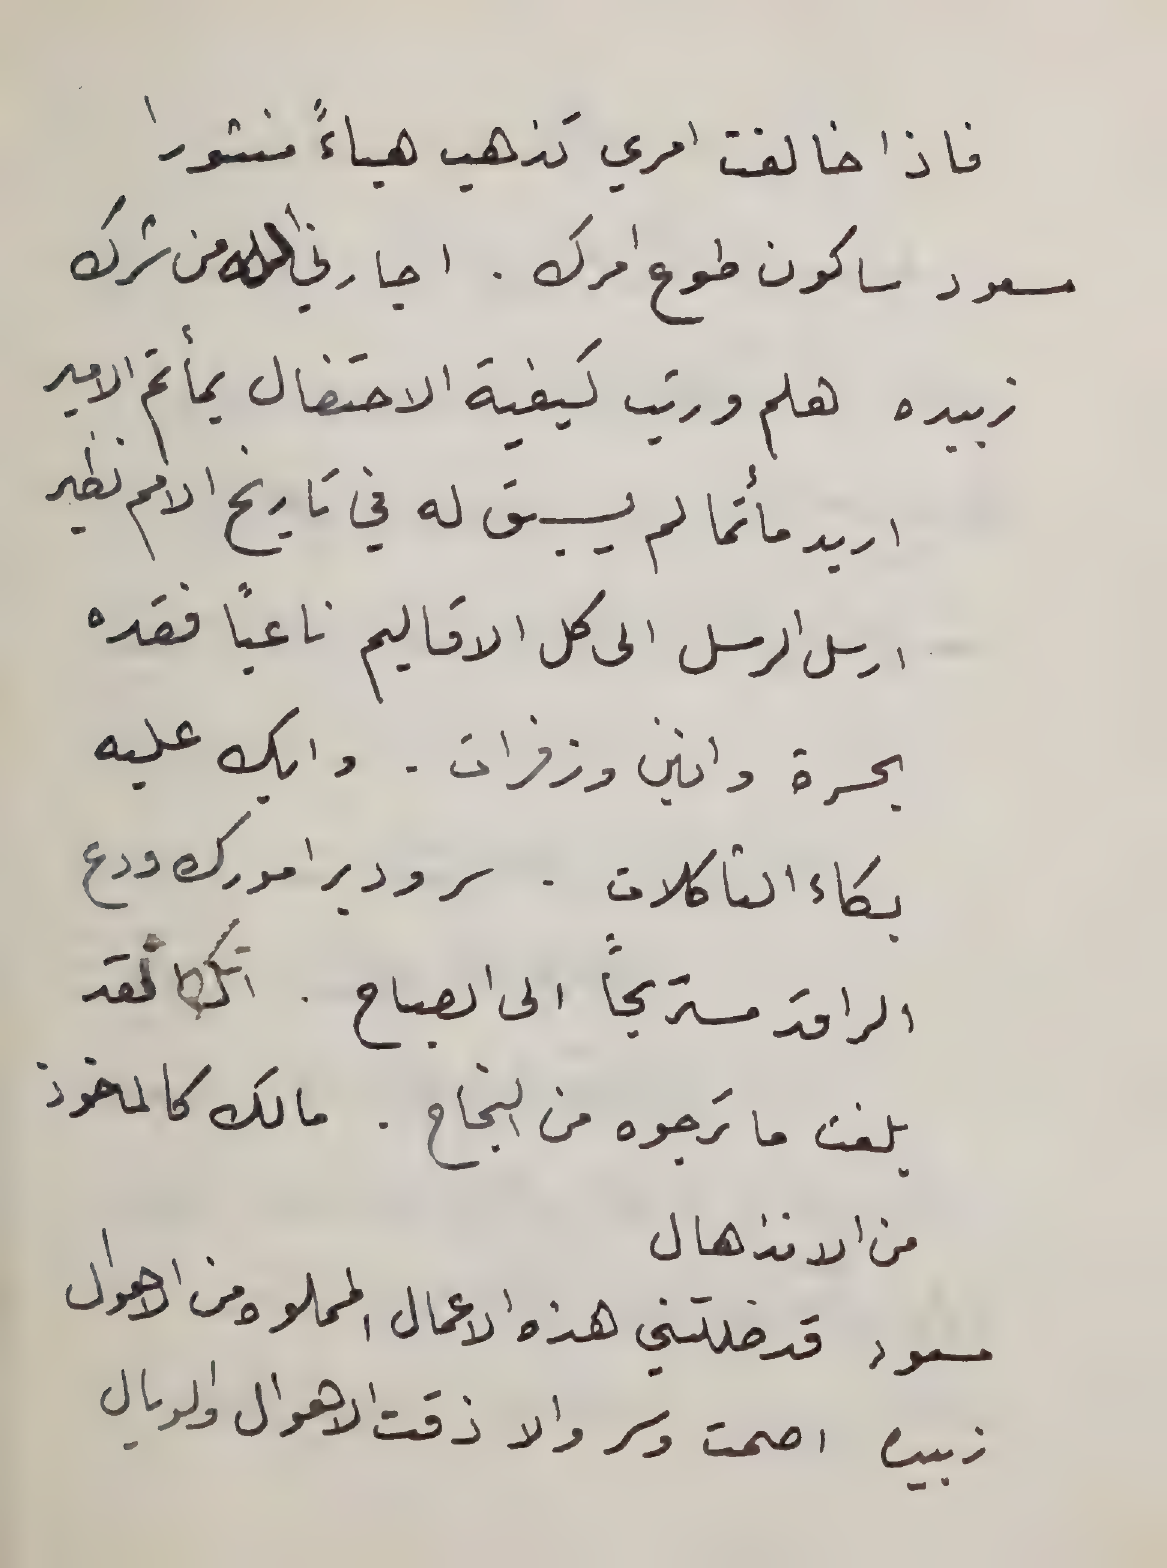 فاذا خالفت امري تذهب هباءً منثورا
مسعود ساكون طوع امرك . اجارني الله من شرك
زبيده هلم ورتب كيفية الاحتفال بمأتم الامير
اريد مأتما لم يسبق له في تاريخ الامم نظير
ارسل الرسل الى كل الاقاليم ناعيًا فقده
بحسرة وانين وزفرات . وابك عليه
بكاء الثاكلات . سر ودبر امورك ودع
الراقد مستريحاً الى الصباح . لقد
بلغت ما ترجوه من النجاح . مالك كالماخوذ
من الانذهال
مسعود قد خللتني هذه الاعمال المملوه من الاهوال
زبيده اصمت وسر والا ذقت الاهوال والوبال